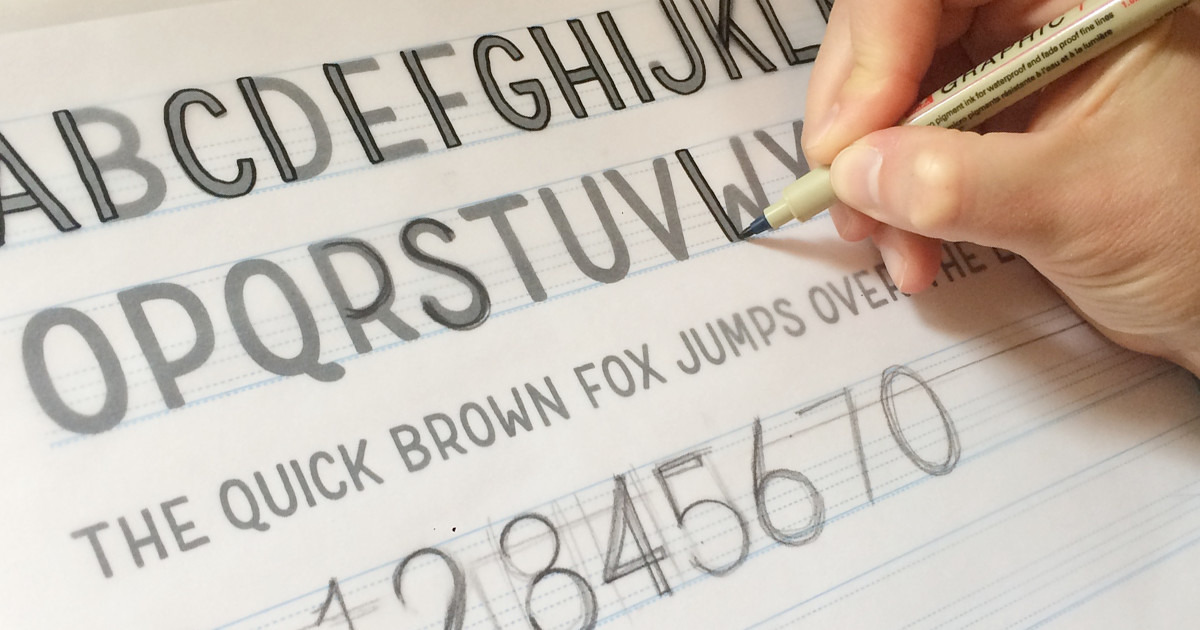 ABCDEFGHIJKL
OPQRSTUVWX
THE QUICK BROWN FOX JUMPS OVER THE
12845670
GRAPHIC 1
pigment ink for waterproof and fade proof fine lines
résistante à l'eau et à la lumière